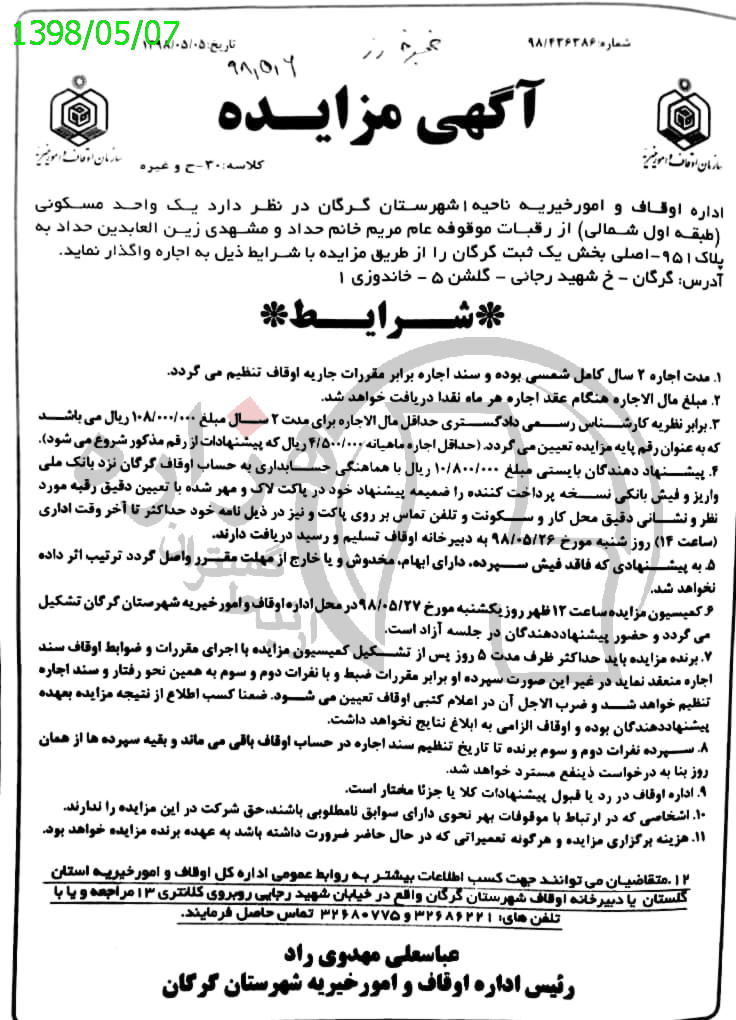 1398/05/07
شماره: ۹۸/۴۳۶۳۸۶
تاریخ: ۱۳۹۸/۰۵/۰۵
۹۸,۵,۶
آگهی مزایده
سازمان اوقاف و امور خیریه
سازمان اوقاف و امور خیریه
کلاسه: ۳۰-ح و غیره
اداره اوقاف و امورخیریه ناحیه ۱ شهرستان گرگان در نظر دارد یک واحد مسکونی
(طبقه اول شمالی) از رقبات موقوفه عام مریم خانم حداد و مشهدی زین العابدین حداد به
پلاک ۹۵۱-اصلی بخش یک ثبت گرگان را از طریق مزایده با شرایط ذیل به اجاره واگذار نماید.
آدرس: گرگان - خ شهید رجائی - گلشن ۵ - خاندوزی ۱
*شرایط*
۱. مدت اجاره ۲ سال کامل شمسی بوده و سند اجاره برابر مقررات جاریه اوقاف تنظیم می گردد.
۲. مبلغ مال الاجاره هنگام عقد اجاره هر ماه نقدا دریافت خواهد شد.
۳. برابر نظریه کارشناس رسمی دادگستری حداقل مال الاجاره برای مدت ۲ سال مبلغ ۱۰۸/۰۰۰/۰۰۰ ریال می باشد
که به عنوان رقم پایه مزایده تعیین می گردد. (حداقل اجاره ماهیانه ۴/۵۰۰/۰۰۰ ریال که پیشنهادات از رقم مذکور شروع می شود).
۴. پیشنهاد دهندگان بایستی مبلغ ۱۰/۸۰۰/۰۰۰ ریال با هماهنگی حسابداری به حساب اوقاف گرگان نزد بانک ملی
واریز و فیش بانکی نسخه پرداخت کننده را ضمیمه پیشنهاد خود در پاکت لاک و مهر شده با تعیین دقیق رقبه مورد
نظر و نشانی دقیق محل کار و سکونت و تلفن تماس بر روی پاکت و نیز در ذیل نامه خود حداکثر تا آخر وقت اداری
(ساعت ۱۴) روز شنبه مورخ ۹۸/۰۵/۲۶ به دبیرخانه اوقاف تسلیم و رسید دریافت دارند.
۵. به پیشنهادی که فاقد فیش سپرده، دارای ابهام، مخدوش و یا خارج از مهلت مقرر واصل گردد ترتیب اثر داده
نخواهد شد.
۶. کمیسیون مزایده ساعت ۱۲ ظهر روز یکشنبه مورخ ۹۸/۰۵/۲۷ در محل اداره اوقاف و امور خیریه شهرستان گرگان تشکیل
می گردد و حضور پیشنهاددهندگان در جلسه آزاد است.
۷. برنده مزایده باید حداکثر ظرف مدت ۵ روز پس از تشکیل کمیسیون مزایده با اجرای مقررات و ضوابط اوقاف سند
اجاره منعقد نماید در غیر این صورت سپرده او برابر مقررات ضبط و با نفرات دوم و سوم به همین نحو رفتار و سند اجاره
تنظیم خواهد شد و ضرب الاجل آن در اعلام کتبی اوقاف تعیین می شود. ضمنا کسب اطلاع از نتیجه مزایده بعهده
پیشنهاددهندگان بوده و اوقاف الزامی به ابلاغ نتایج نخواهد داشت.
۸. سپرده نفرات دوم و سوم برنده تا تاریخ تنظیم سند اجاره در حساب اوقاف باقی می ماند و بقیه سپرده ها از همان
روز بنا به درخواست ذینفع مسترد خواهد شد.
۹. اداره اوقاف در رد یا قبول پیشنهادات کلا یا جزئا مختار است.
۱۰. اشخاصی که در ارتباط با موقوفات بهر نحوی دارای سوابق نامطلوبی باشند، حق شرکت در این مزایده را ندارند.
۱۱. هزینه برگزاری مزایده و هرگونه تعمیراتی که در حال حاضر ضرورت داشته باشد به عهده برنده مزایده خواهد بود.
۱۲. متقاضیان می توانند جهت کسب اطلاعات بیشتر به روابط عمومی اداره کل اوقاف و امورخیریه استان
گلستان یا دبیرخانه اوقاف شهرستان گرگان واقع در خیابان شهید رجایی روبروی کلانتری ۱۳ مراجعه و یا با
تلفن های: ۳۲۶۸۶۲۲۱ و ۳۲۶۸۰۷۷۵ تماس حاصل فرمایند.
عباسعلی مهدوی راد
رئیس اداره اوقاف و امورخیریه شهرستان گرگان